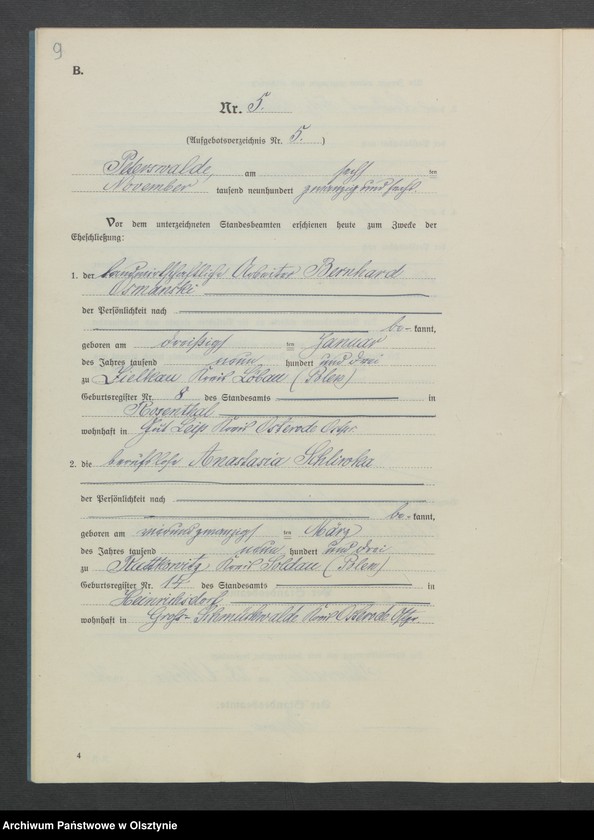 9
B.
Nr. 5.
(Aufgebotsverzeichnis Nr. 5.)
Peterswalde, am sechs ten
November tausend neunhundert zwanzig und sechs.
Vor dem unterzeichneten Standesbeamten erschienen heute zum Zwecke der
Eheschließung:
1. der landwirtschaftliche Arbeiter Bernhard
Osmanski
der Persönlichkeit nach
be- kannt,
geboren am dreißigs ten Januar
des Jahres tausend neun hundert und drei
zu Zielkau Kreis Löbau (Polen)
Geburtsregister Nr. 8 des Standesamts in
Rosenthal
wohnhaft in Gut Leip Kreis Osterode Ostpr.
2. die berufslose Anastasia
der Persönlichkeit nach
be- kannt,
geboren am vierundzwanzigs ten März
des Jahres tausend neun hundert und drei
zu Kreis Soldau (Polen)
Geburtsregister Nr. des Standesamts in
Heinrichsdorf
wohnhaft in Groß- Schmückwalde Kreis Osterode Ostpr.
4
Archiwum Państwowe w Olsztynie